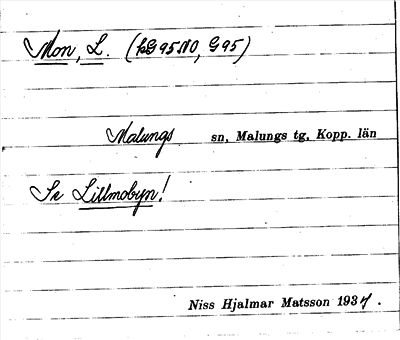 Mon, L. (kG95NO, G95)
Malungs sn, Malungs tg, Kopp. län
Se Lillmobyn!
Niss Hjalmar Matsson 1937.